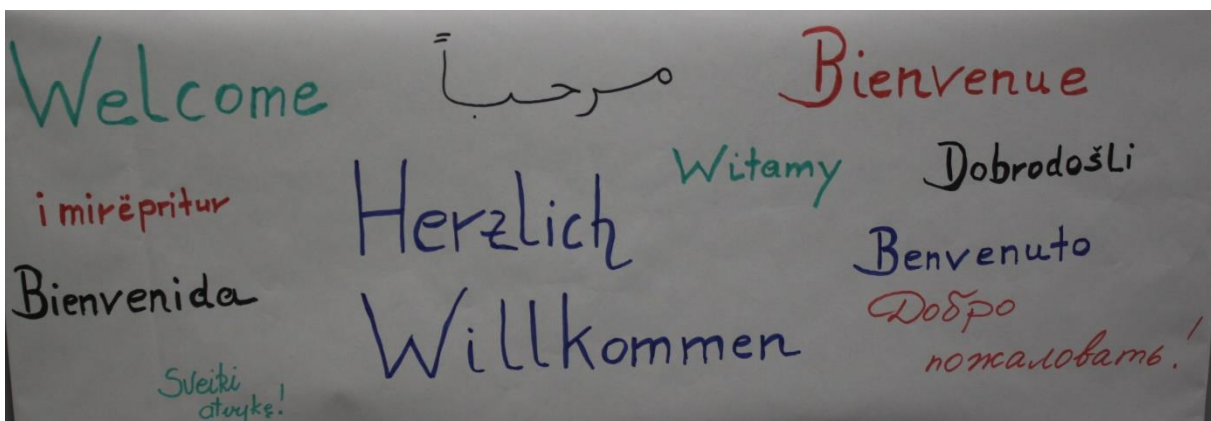 Welcome
مرحباً
Bienvenue
i mirëpritur
Herzlich
Willkommen
Witamy
Dobrodošli
Bienvenida
Benvenuto
Добро
пожаловать!
Sveiki
atvykę!